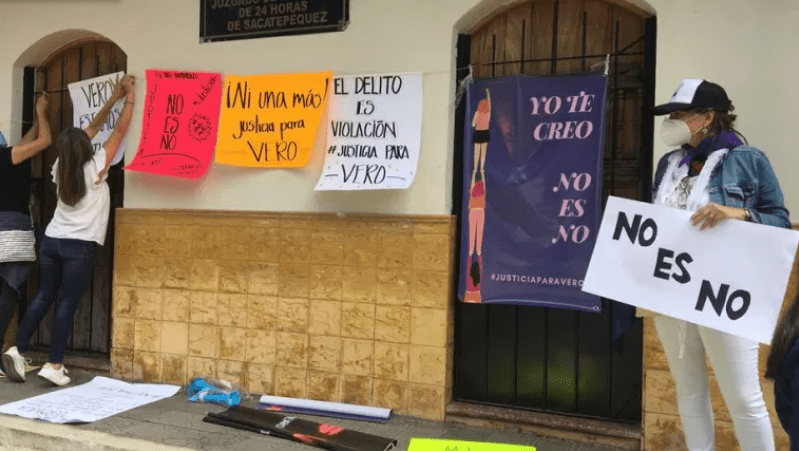 JUZGADO DE
DE 24 HORAS
DE SACATEPEQUEZ
VERO
NO
ES
NO
¡Ni una más!
justicia para
VERO
EL DELITO
ES
VIOLACIÓN
#JUSTICIA PARA
VERO
YO TE
CREO
NO
ES
NO
#JUSTICIAPARAVERO
NO
ES
NO